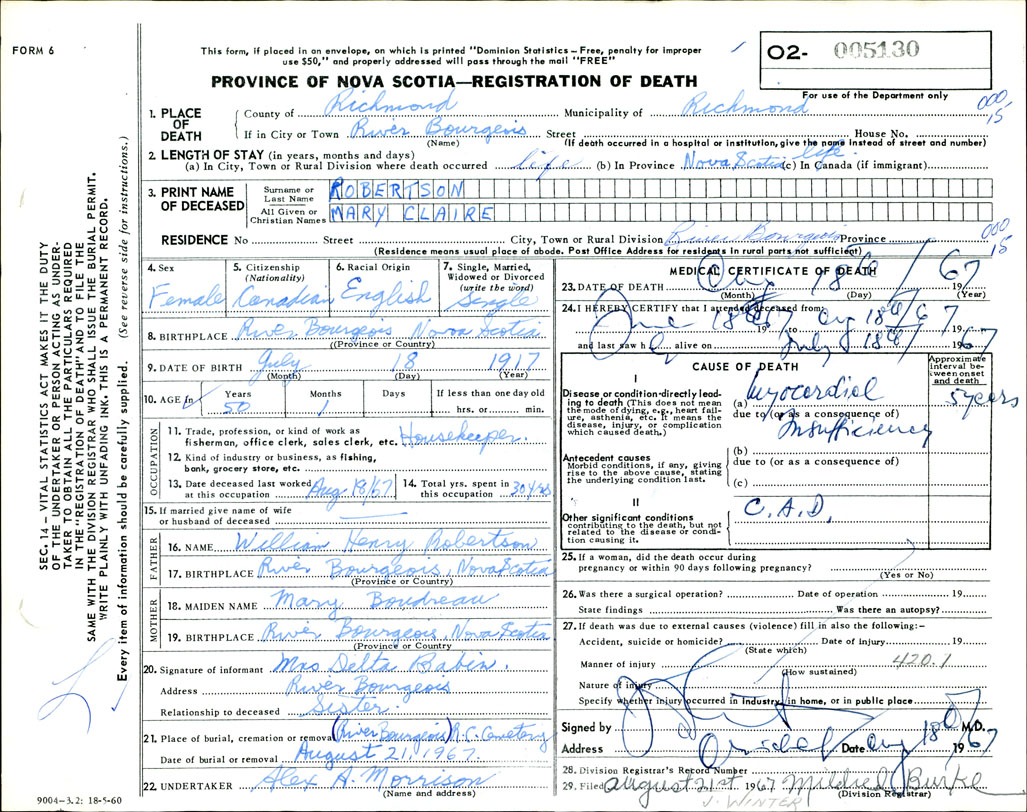 FORM 6
This form, if placed in an envelope, on which is printed "Dominion Statistics – Free, penalty for improper
use $50," and properly addressed will pass through the mail "FREE"
O2- 005130
PROVINCE OF NOVA SCOTIA—REGISTRATION OF DEATH
For use of the Department only
000
15
1. PLACE OF DEATH
County of Richmond Municipality of Richmond
If in City or Town River Bourgeois Street House No.
(Name) (If death occurred in a hospital or institution, give the name instead of street and number)
2. LENGTH OF STAY (in years, months and days)
(a) In City, Town or Rural Division where death occurred life (b) In Province Nova Scotia (c) In Canada (if immigrant) life
3. PRINT NAME OF DECEASED
Surname or Last Name ROBERTSON
All Given or Christian Names MARY CLAIRE
000
15
RESIDENCE No Street City, Town or Rural Division River Bourgeois Province
(Residence means usual place of abode. Post Office Address for residents in rural parts not sufficient)
4. Sex Female
5. Citizenship (Nationality) Canadian
6. Racial Origin English
7. Single, Married, Widowed or Divorced (write the word) Single
8. BIRTHPLACE River Bourgeois Nova Scotia
(Province or Country)
9. DATE OF BIRTH July 18 1917
(Month) (Day) (Year)
10. AGE In Years 50 Months 1 Days If less than one day old hrs. or min.
OCCUPATION
11. Trade, profession, or kind of work as
fisherman, office clerk, sales clerk, etc. Housekeeper.
12. Kind of industry or business, as fishing,
bank, grocery store, etc.
13. Date deceased last worked at this occupation Aug 18/67
14. Total yrs. spent in this occupation 30 yrs
15. If married give name of wife
or husband of deceased
FATHER
16. NAME William Henry Robertson
17. BIRTHPLACE River Bourgeois, Nova Scotia
(Province or Country)
MOTHER
18. MAIDEN NAME Mary Boudreau
19. BIRTHPLACE River Bourgeois, Nova Scotia
(Province or Country
20. Signature of informant Mrs Delta Babin.
Address River Bourgeois
Relationship to deceased Sister.
21. Place of burial, cremation or removal (River Bourgeois) R.C. Cemetery
Date of burial or removal August 21, 1967.
22. UNDERTAKER Alex A. Morrison
(Name and address)
MEDICAL CERTIFICATE OF DEATH
23. DATE OF DEATH Aug 18 /67
(Month) (Day) (Year)
24. I HEREBY CERTIFY that I attended deceased from
18th 19 to Aug 18th/67 19
and last saw h alive on July 18th/ 1967
CAUSE OF DEATH
Approximate interval between onset and death
I
Disease or condition directly leading to death (This does not mean the mode of dying, e.g., heart failure, asthenia, etc. It means the disease, injury, or complication which caused death.)
(a) Myocardial 5 years
due to (or as a consequence of)
Insufficiency
Antecedent causes
Morbid conditions, if any, giving rise to the above cause, stating the underlying condition last.
(b)
due to (or as a consequence of)
(c)
II
Other significant conditions
contributing to the death, but not related to the disease or condition causing it.
C.A.D.
25. If a woman, did the death occur during
pregnancy or within 90 days following pregnancy?
(Yes or No)
26. Was there a surgical operation? Date of operation 19
State findings Was there an autopsy?
27. If death was due to external causes (violence) fill in also the following:–
Accident, suicide or homicide? Date of injury 19
(State which)
Manner of injury 420.1
(How sustained)
Nature of injury
Specify whether injury occurred in Industry, in home, or in public place
Signed by M.D.
Address Date Aug 18 1967
28. Division Registrar's Record Number
29. Filed August 21st 1967 Mildred Burke
(Division Registrar)
J. WINTER
SEC. 14 – VITAL STATISTICS ACT MAKES IT THE DUTY
OF THE UNDERTAKER OR PERSON ACTING AS UNDER-
TAKER TO OBTAIN ALL THE PARTICULARS REQUIRED
IN THE "REGISTRATION OF DEATH" AND TO FILE THE
SAME WITH THE DIVISION REGISTRAR WHO SHALL ISSUE THE BURIAL PERMIT.
WRITE PLAINLY WITH UNFADING INK. THIS IS A PERMANENT RECORD.
Every item of information should be carefully supplied. (See reverse side for instructions.)
9004–3.2: 18-5-60